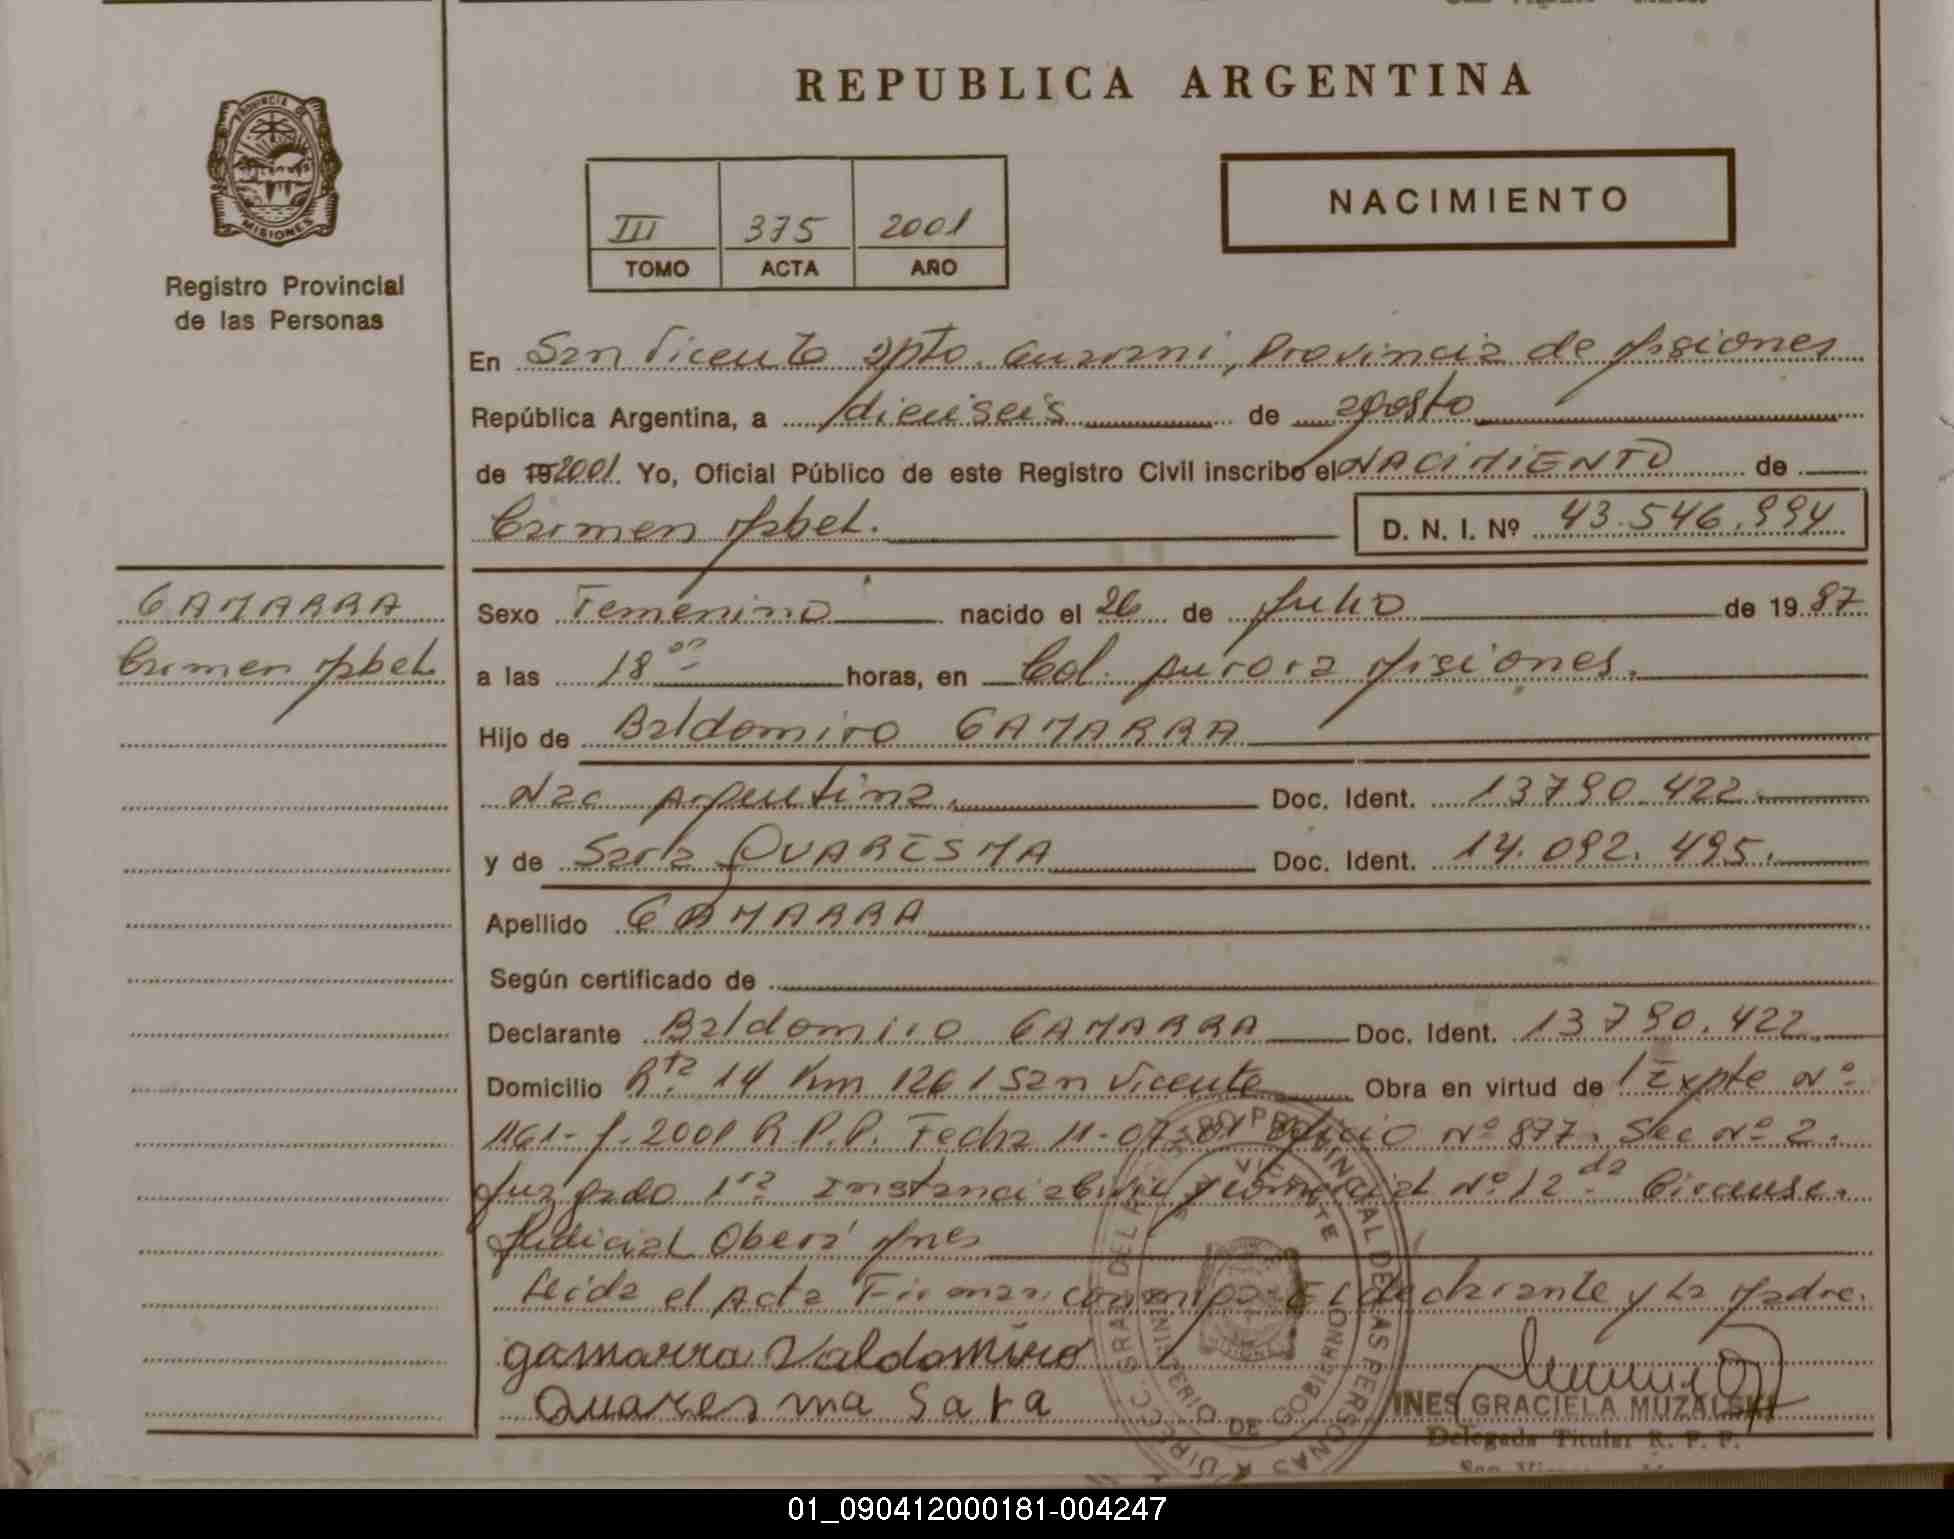 REPUBLICA ARGENTINA
PROVINCIA D
MISIONES
Registro Provincial
de las Personas
III 375 2001
TOMO ACTA AÑO
NACIMIENTO
En San Vicente Dpto. Guarani, Provincia de Misiones
República Argentina, a dieciseis de agosto
de 19 2001. Yo, Oficial Público de este Registro Civil inscribo el NACIMIENTO de
Carmen Mabel. D. N. I. Nº 43.546.994
GAMARRA
Carmen Mabel
Sexo Femenino nacido el 26 de Julio de 19 87
a las 18 00 horas, en Col. Aurora Misiones.
Hijo de Baldomiro GAMARRA
Nac Argentina. Doc. Ident. 13790.422
y de Sara QUARESMA Doc. Ident. 14.092.495.
Apellido GAMARRA
Según certificado de
Declarante Baldomiro GAMARRA Doc. Ident. 13790.422
Domicilio Rta 14 Km 1261 San Vicente Obra en virtud de Expte Nº
1161-J-2001 R.P.P. Fecha 11-07-01 Oficio Nº 877. Sec Nº 2.
Juzgado 1ra Instancia Civil y Comercial Nº 1 2da Circunsc.
Judicial Oberá Mnes
Leida el Acta Firman conmigo El declarante y La Madre.
gamarra Valdomiro
Quaresma Sara
INES GRACIELA MUZALSKI
Delegada Titular R. P. P.
DIRECC. GRAL DEL REGISTRO PROVINCIAL DE LAS PERSONAS
VICENTE
MINISTERIO DE GOBIERNO
01_090412000181-004247